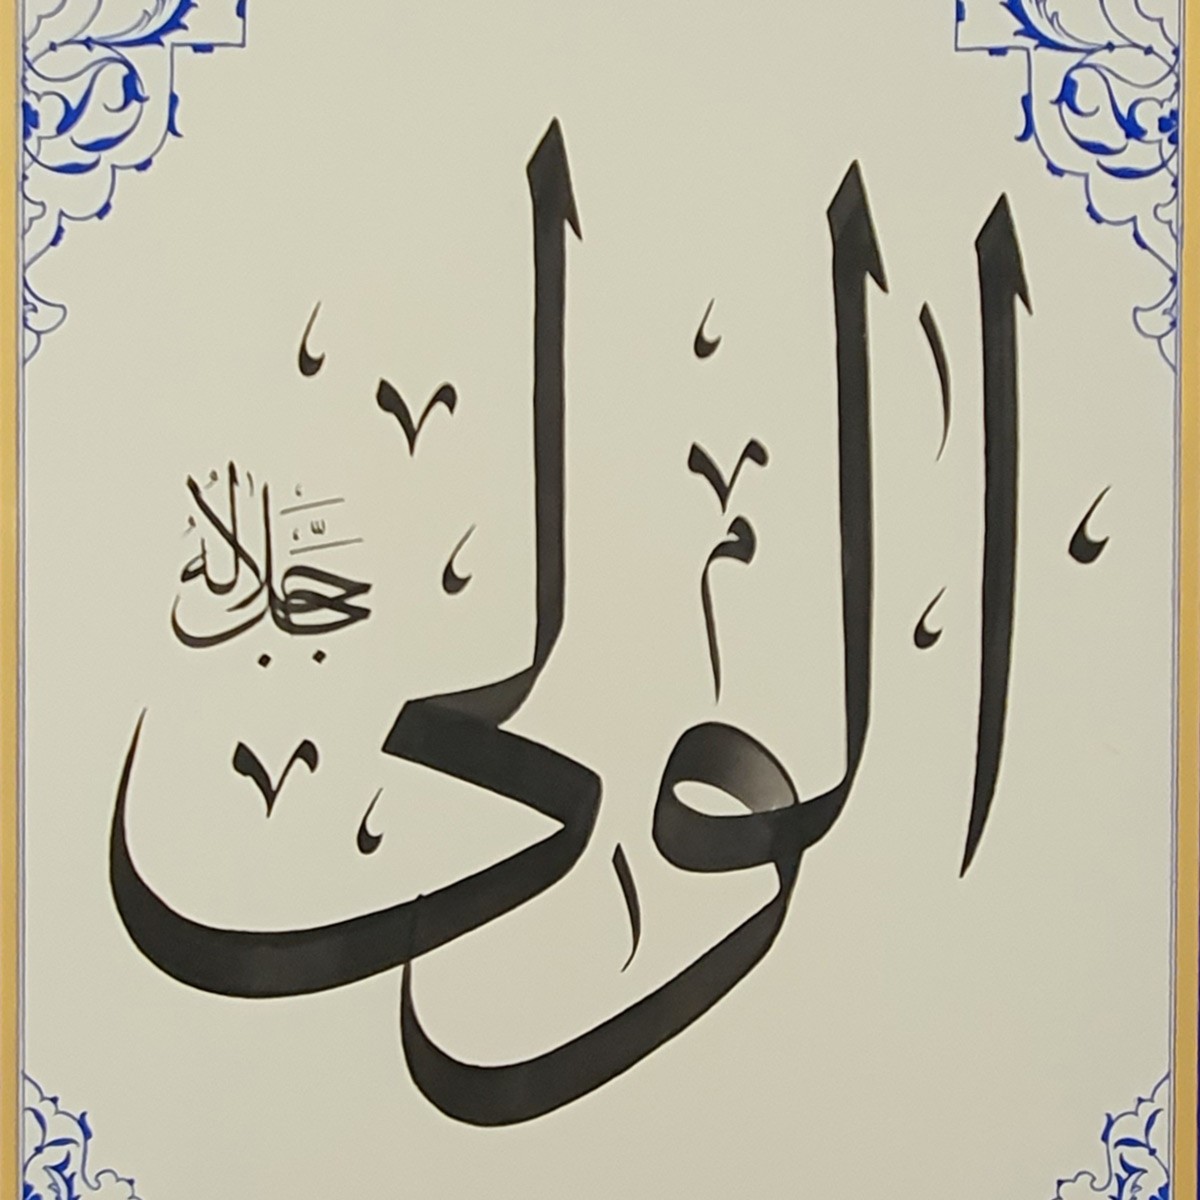 الولى
جَلَّ جَلَالُهُ